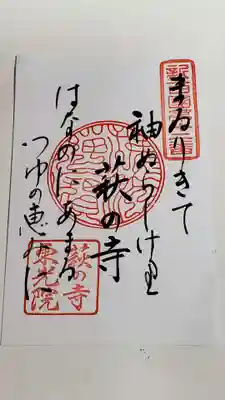 まゐりきて
袖ぬらしけり
萩の寺
はなのにあまる
つゆの恵に
萩の寺
東光院